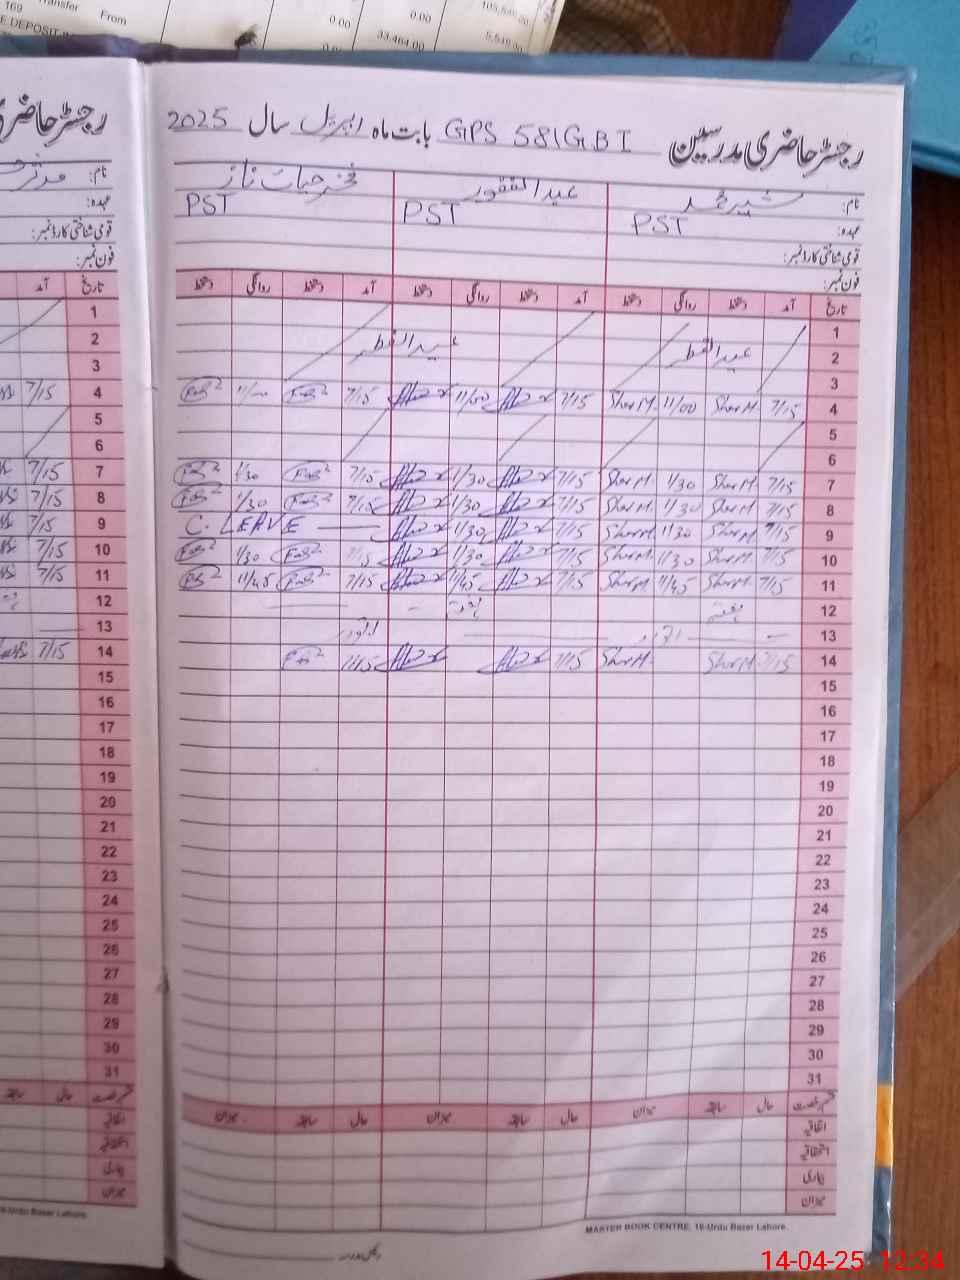 169
Transfer
From
0.00
0.00
105,545.00
E DEPOSIT
33,464.00
5,545.00
رجسٹر حاضری مدرسین GPS 581GB I بابت ماہ اپریل سال 2025
نام: شیر محمد عبدالغفور فخر حیات ناز
عہدہ: PST PST PST
قومی شناختی کارڈ نمبر:
فون نمبر:
تاریخ آمد دستخط روانگی دستخط آمد دستخط روانگی دستخط آمد دستخط روانگی دستخط
1
2 عیدالفطر عیدالفطر
3
4 7/15 Sher M. 11/00 Sher M. 7/15 11/00 7/15 11/00
5
6
7 7/15 Sher M. 1/30 Sher M. 7/15 1/30 7/15 1/30
8 7/15 Sher M. 1/30 Sher M. 7/15 1/30 7/15 1/30
9 7/15 Sher M. 1/30 Sher M. 7/15 1/30 C. LEAVE
10 7/15 Sher M. 1/30 Sher M. 7/15 1/30 7/15 1/30
11 7/15 Sher M. 11/45 Sher M. 7/15 11/45 7/15 11/45
12 ہفتہ ہفتہ
13 اتوار اتوار
14 7/15 Sher M. Sher M. 7/15 7/15
15
16
17
18
19
20
21
22
23
24
25
26
27
28
29
30
31
قسم رخصت حال سابقہ میزان حال سابقہ میزان حال سابقہ میزان
اتفاقیہ
استحقاقیہ
بیماری
میزان
MASTER BOOK CENTRE, 16-Urdu Bazar Lahore.
رجسٹر حاضری
نام: مدثر
عہدہ:
قومی شناختی کارڈ نمبر:
فون نمبر:
تاریخ آمد
1
2
3
4 7/15
5
6
7 7/15
8 7/15
9 7/15
10 7/15
11 7/15
12
13
14 7/15
15
16
17
18
19
20
21
22
23
24
25
26
27
28
29
30
31
قسم رخصت حال سابقہ
اتفاقیہ
استحقاقیہ
بیماری
میزان
Urdu Bazar Lahore.
14-04-25 12:34